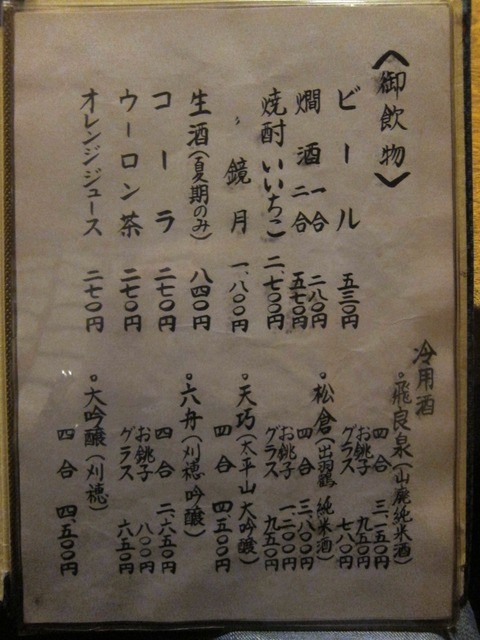 〈御飲物〉
ビール 五三〇円
燗酒 一合 二八〇円
二合 五七〇円
焼酎 いいちこ 二、七〇〇円
〃 鏡月 一、八〇〇円
生酒(夏期のみ) 八四〇円
コーラ 二七〇円
ウーロン茶 二七〇円
オレンジジュース 二七〇円
冷用酒
。飛良泉(山廃純米酒)
四合 三、一五〇円
お銚子 九五〇円
グラス 七八〇円
。松倉(出羽鶴 純米酒)
四合 三、八〇〇円
お銚子 一、二〇〇円
グラス 九五〇円
。天巧(太平山 大吟醸)
四合 四、五〇〇円
。六舟(刈穂 吟醸)
四合 二、六五〇円
お銚子 八〇〇円
グラス 六五〇円
。大吟醸(刈穂)
四合 四、五〇〇円